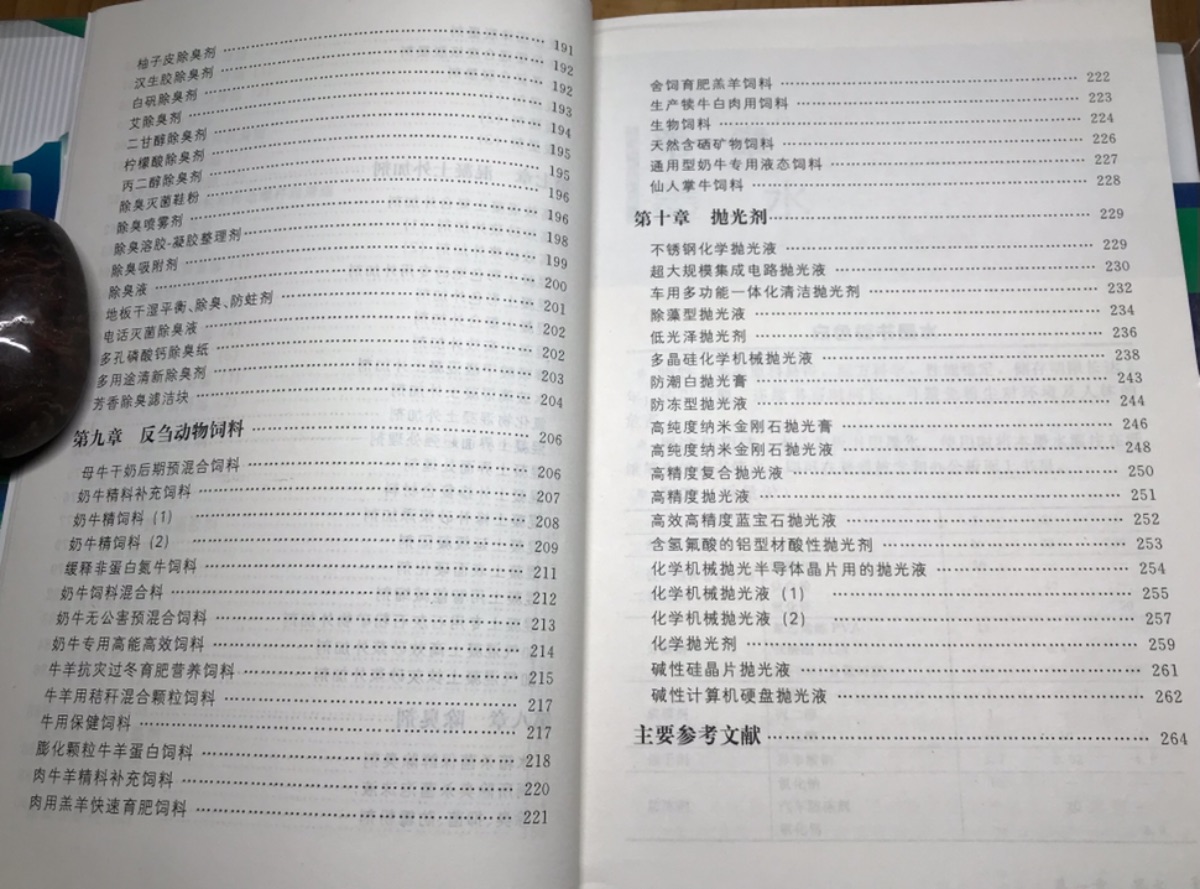 柚子皮除臭剂 …… 191
汉生胶除臭剂 …… 192
白矾除臭剂 …… 192
艾除臭剂 …… 193
二甘醇除臭剂 …… 194
柠檬酸除臭剂 …… 195
丙二醇除臭剂 …… 195
除臭灭菌鞋粉 …… 196
除臭喷雾剂 …… 196
除臭溶胶-凝胶整理剂 …… 198
除臭吸附剂 …… 199
除臭液 …… 200
地板干湿平衡、除臭、防蛀剂 …… 201
电话灭菌除臭液 …… 202
多孔磷酸钙除臭纸 …… 202
多用途清新除臭剂 …… 203
芳香除臭滤洁块 …… 204
第九章 反刍动物饲料 …… 206
母牛干奶后期预混合饲料 …… 206
奶牛精料补充饲料 …… 207
奶牛精饲料（1） …… 208
奶牛精饲料（2） …… 209
缓释非蛋白氮牛饲料 …… 211
奶牛饲料混合料 …… 212
奶牛无公害预混合饲料 …… 213
奶牛专用高能高效饲料 …… 214
牛羊抗灾过冬育肥营养饲料 …… 215
牛羊用秸秆混合颗粒饲料 …… 217
牛用保健饲料 …… 217
膨化颗粒牛羊蛋白饲料 …… 218
肉牛羊精料补充饲料 …… 220
肉用羔羊快速育肥饲料 …… 221
舍饲育肥羔羊饲料 …… 222
生产犊牛白肉用饲料 …… 223
生物饲料 …… 224
天然含硒矿物饲料 …… 226
通用型奶牛专用液态饲料 …… 227
仙人掌牛饲料 …… 228
第十章 抛光剂 …… 229
不锈钢化学抛光液 …… 229
超大规模集成电路抛光液 …… 230
车用多功能一体化清洁抛光剂 …… 232
除藻型抛光液 …… 234
低光泽抛光剂 …… 236
多晶硅化学机械抛光液 …… 238
防潮白抛光膏 …… 243
防冻型抛光液 …… 244
高纯度纳米金刚石抛光膏 …… 246
高纯度纳米金刚石抛光液 …… 248
高精度复合抛光液 …… 250
高精度抛光液 …… 251
高效高精度蓝宝石抛光液 …… 252
含氢氟酸的铝型材酸性抛光剂 …… 253
化学机械抛光半导体晶片用的抛光液 …… 254
化学机械抛光液（1） …… 255
化学机械抛光液（2） …… 257
化学抛光剂 …… 259
碱性硅晶片抛光液 …… 261
碱性计算机硬盘抛光液 …… 262
主要参考文献 …… 264